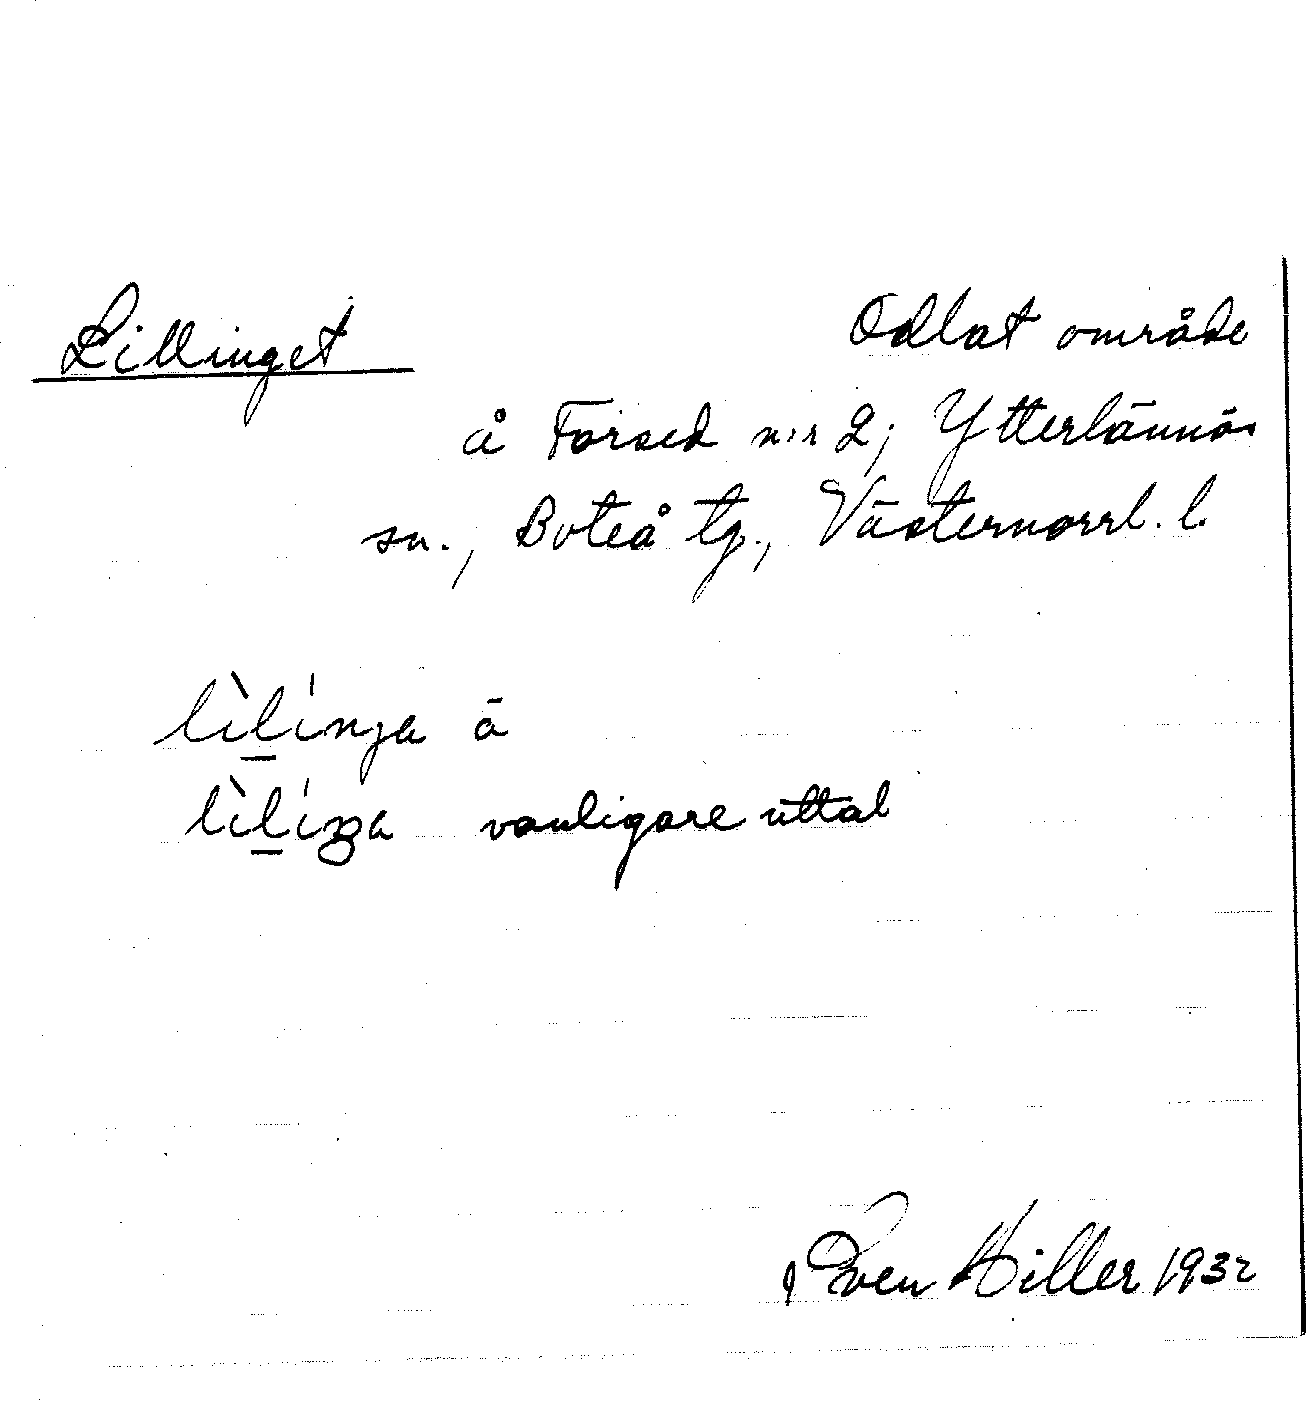 Lillinget Odlat område
å Forsed n:r 2; Ytterlännäs
sn., Boteå tg., Västernorrl. l.
lìlínja å
lìlíŋa vanligare uttal
Sven Hiller 1932